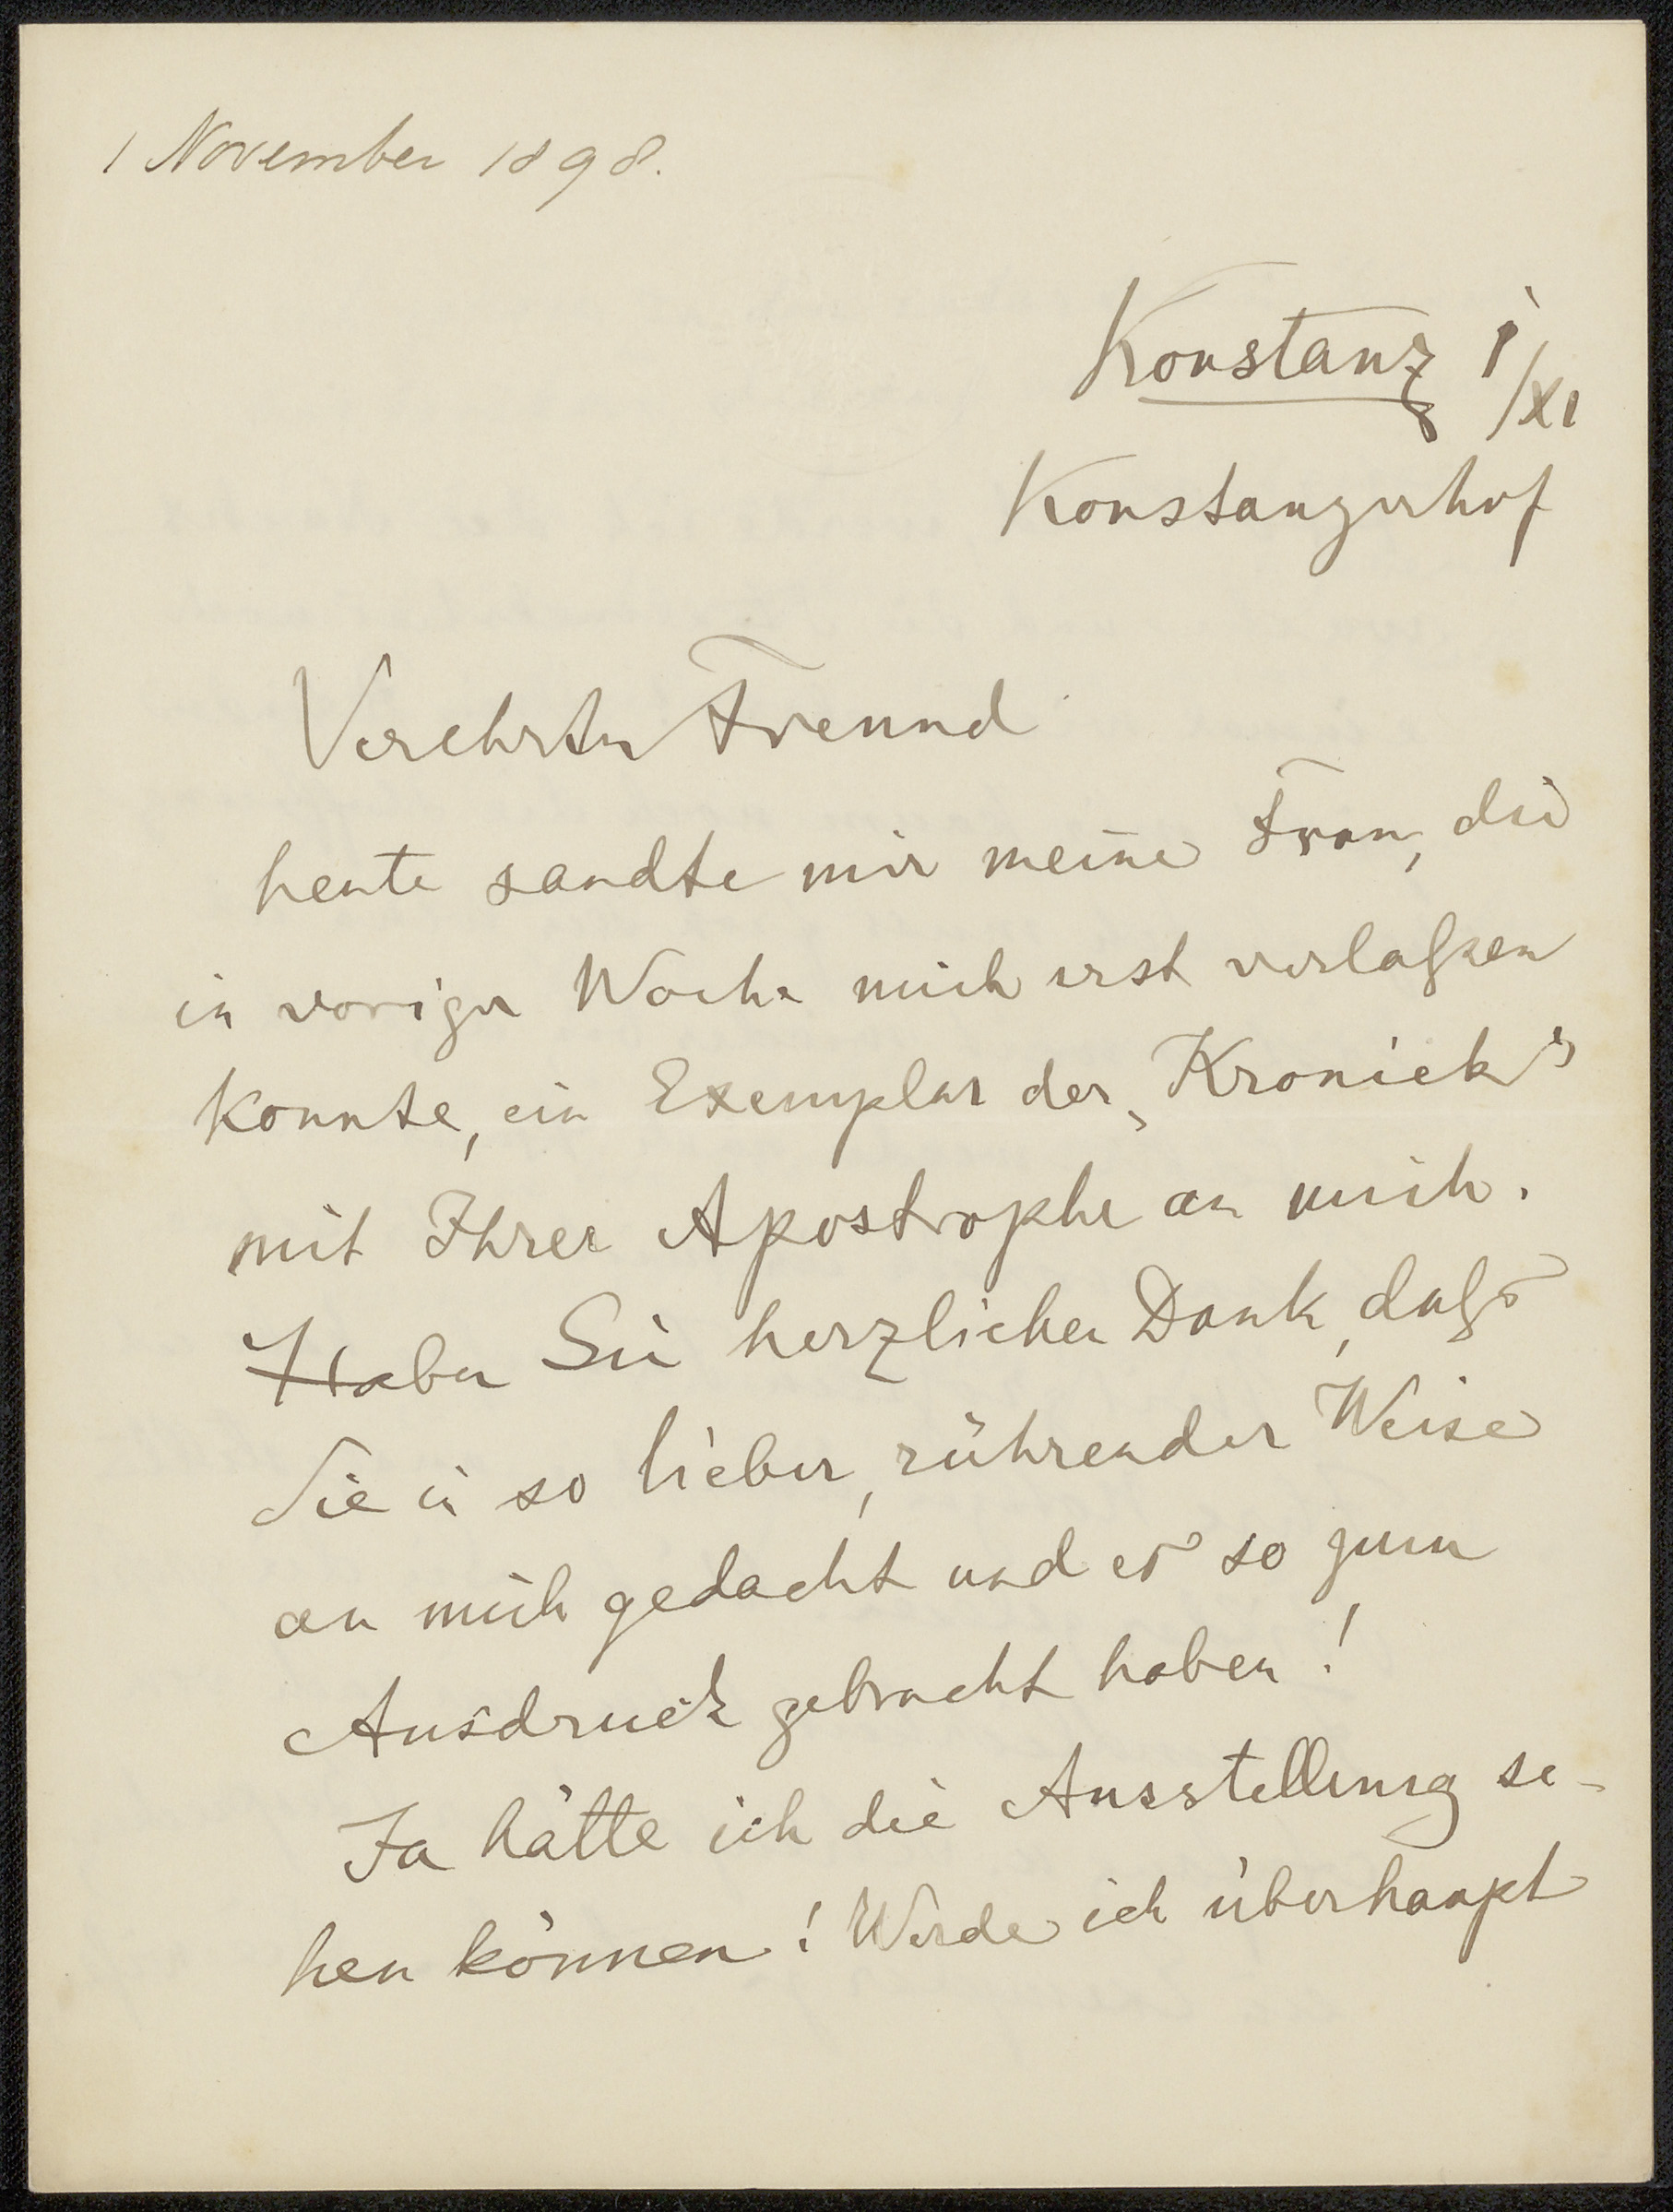 1 November 1898.
Konstanz 1/XI
Konstanzerhof
Verehrter Freund
heute sandte mir meine Frau, die
in voriger Woche mich erst verlaßsen
konnte, ein Exemplar der „Kroniek"
mit Ihrer Apostrophe an mich.
Haben Sie herzlichen Dank, daß
Sie in so lieber, rührender Weise
an mich gedacht und es so zum
Ausdruck gebracht haben!
Ja hätte ich die Ausstellung se-
hen können! Werde ich überhaupt